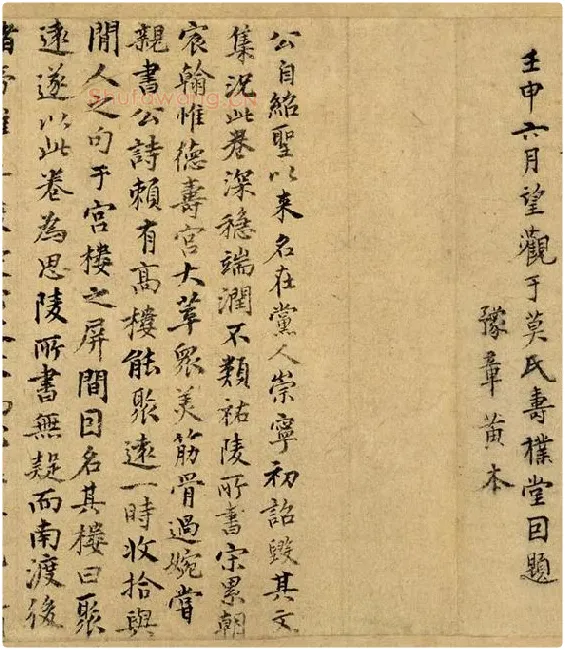 壬申六月望觀于莫氏壽樸堂因題
豫章黄本
公自紹聖以来名在黨人崇寧初詔毁其文
集況此卷深穏端潤不類祐陵所書宋累朝
宸翰惟德壽宫大萃眾美筋骨過婉嘗
親書公詩頼有髙樓能聚逺一時收拾與
閒人之句于宫樓之屏間因名其樓曰聚
逺遂以此卷為思陵所書無疑而南渡後
Shufawang.CN